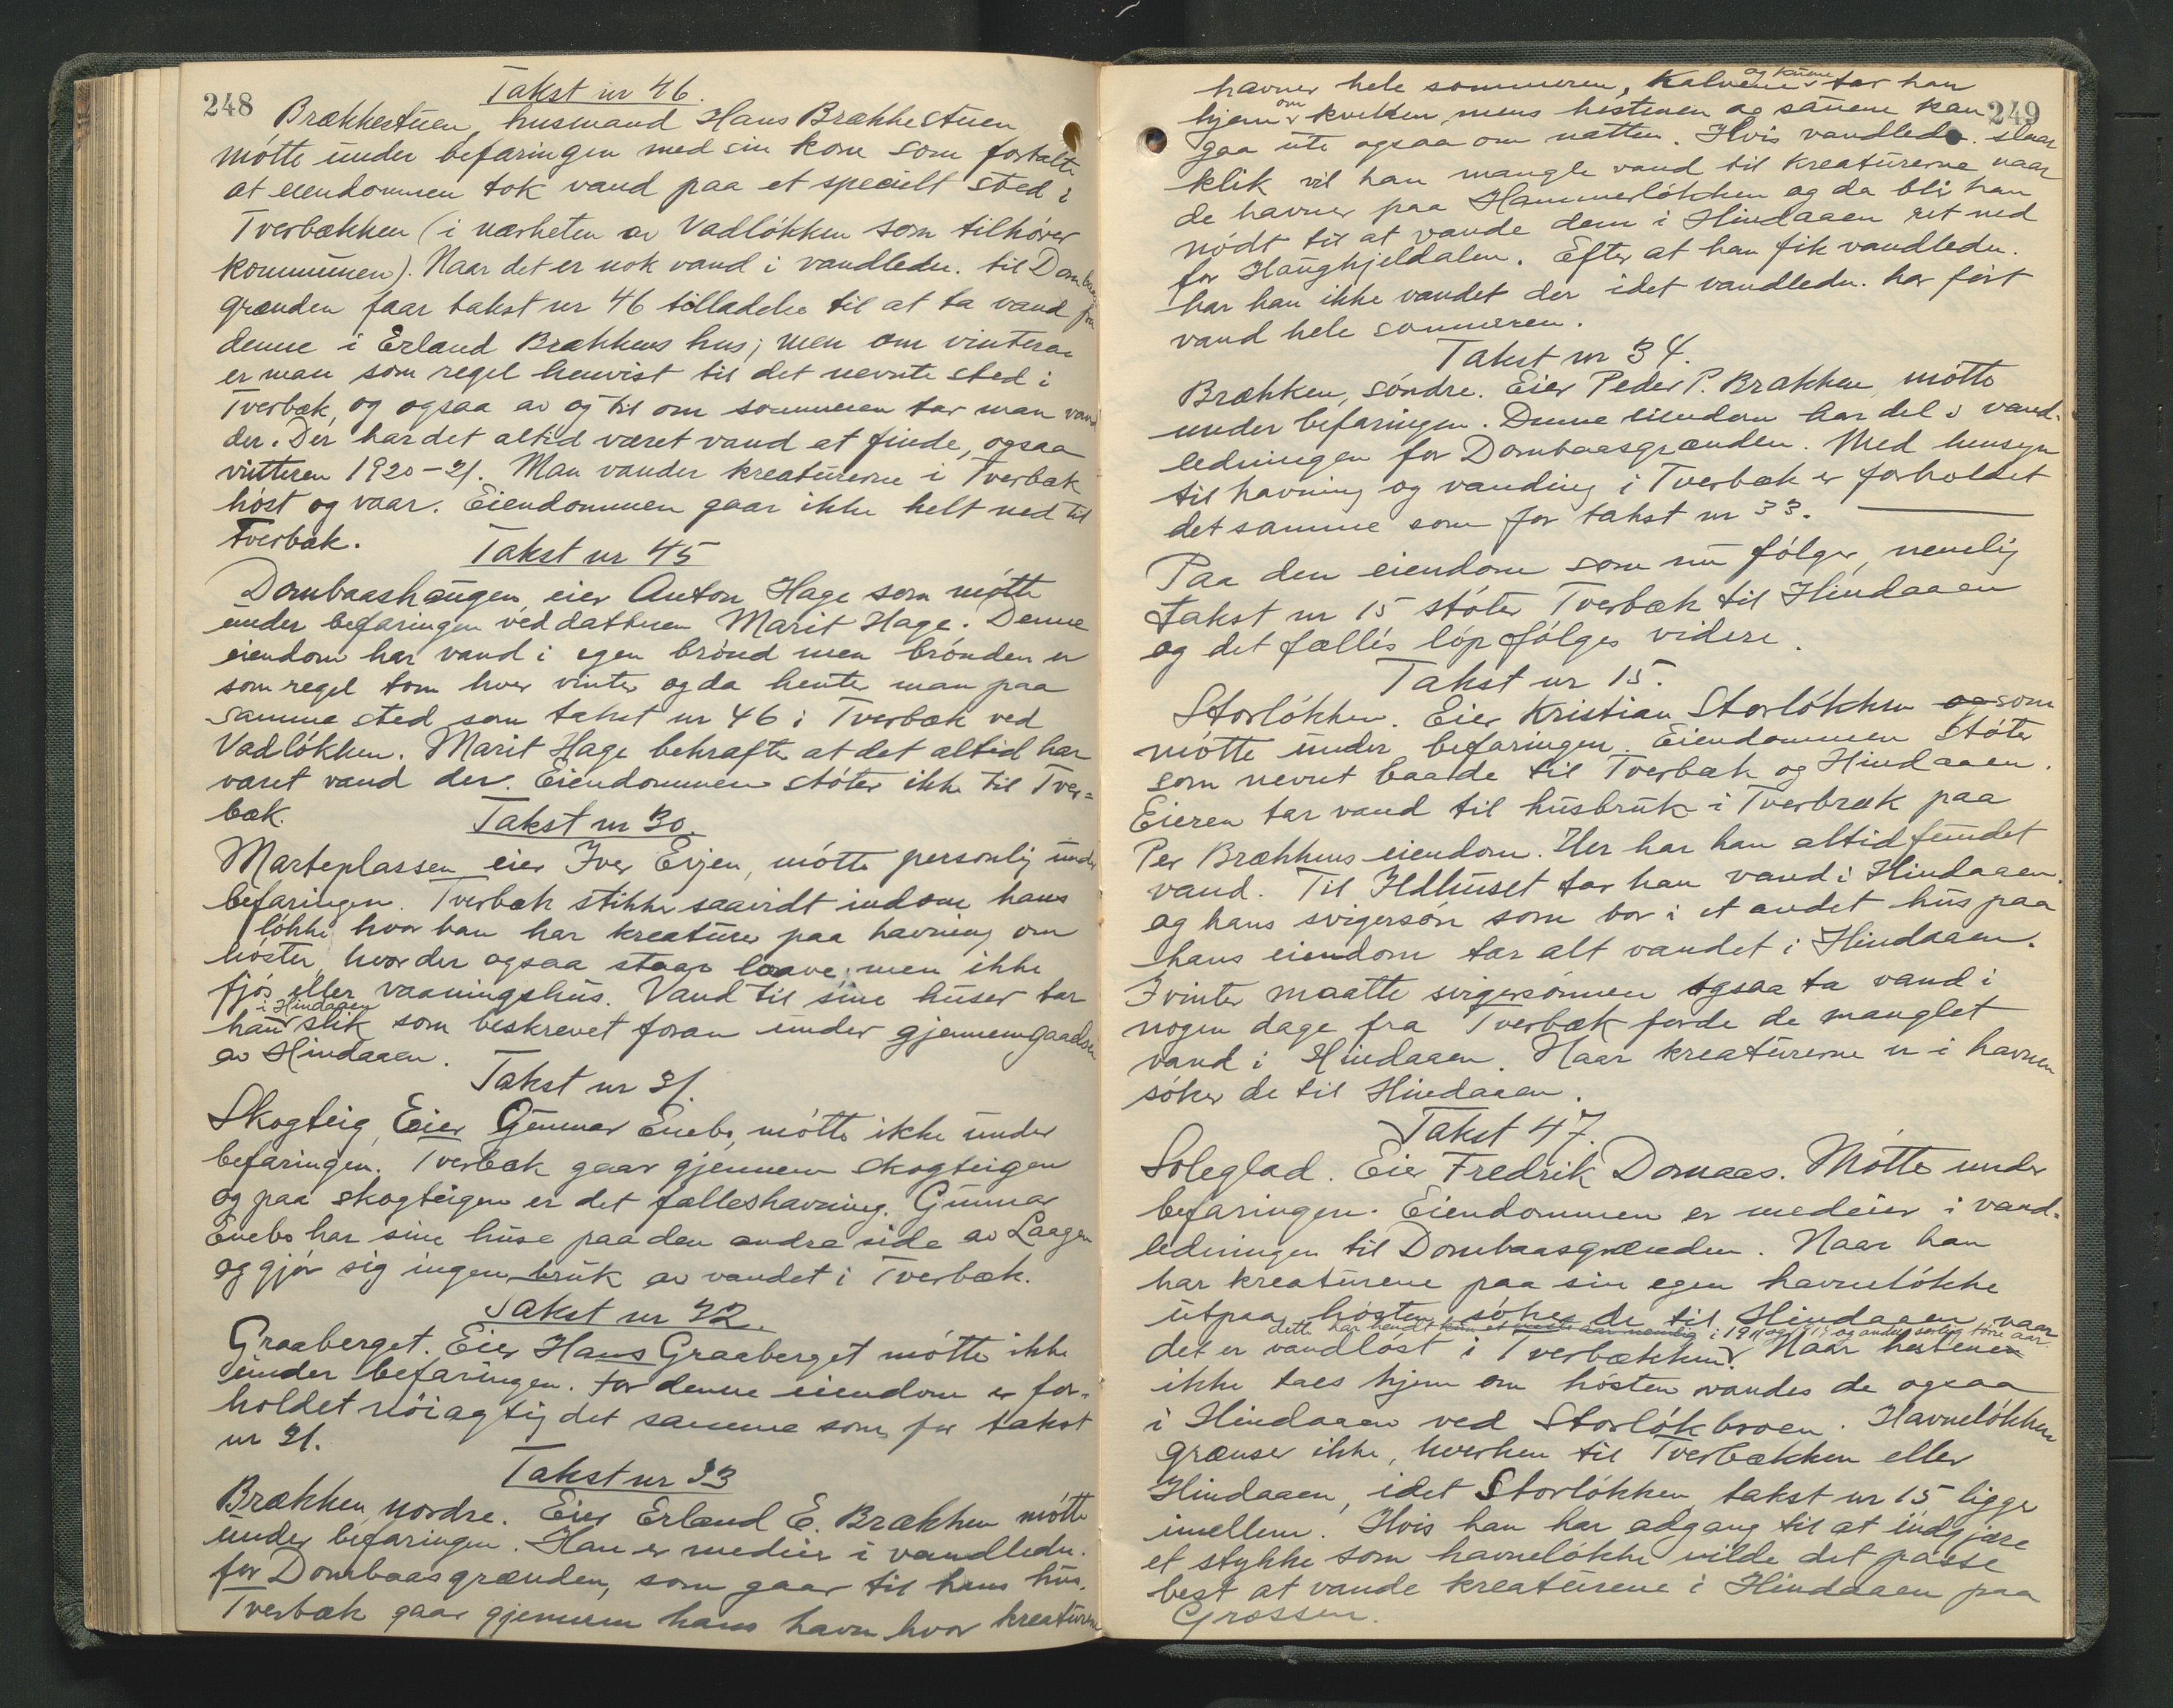 248
Takst nr 46.
Brækkestuen, husmand Hans Brækkestuen
møtte under befaringen med sin kone som fortalte
at eiendommen tok vand paa et specielt sted i
Tverbækken (i nærheten av Vadløkken som tilhører
kommunen). Naar det er nok vand i vandledn. til Dombaas
grænden faar takst nr 46 tilladelse til at ta vand fra
denne i Erland Brækkens hus; men om vinteren
er man som regel henvist til det nevnte sted i
Tverbæk, og ogsaa av og til om sommeren tar man vand
der. Der har det altid været vand at finde, ogsaa
vinteren 1920-21. Man vander kreaturerne i Tverbæk
høst og vaar. Eiendommen gaar ikke helt ned til
Tverbæk.
Takst nr 45
Dombaashaugen eier Anton Hage som møtte
under befaringen ved datteren Marit Hage. Denne
eiendom har vand i egen brønd men brønden er
som regel tom hver vinter og da henter man paa
samme sted som takst nr 46 i Tverbæk ved
Vadløkken. Marit Hage bekræfter at det altid har
været vand der. Eiendommen støter ikke til Tver=
bæk.
Takst nr 30.
Marteplassen eier Iver Evjen, møtte personlig under
befaringen. Tverbæk stikker saavidt indom hans
løkke hvor han har kreaturer paa havning om
høsten, hvor der ogsaa staar laave, men ikke
fjøs eller vaaningshus. Vand til sine huser tar
i Hindaaen
han slik som beskrevet foran under gjennemgaaelsen
av Hindaaen.
Takst nr 31.
Skogteig, Eier Gunnar Enebo, møtte ikke under
befaringen. Tverbæk gaar gjennem skogteigen
og paa skogteigen er det fælleshavning. Gunnar
Enebo har sine huse paa den andre side av Laagen
og gjør sig ingen bruk av vandet i Tverbæk.
Takst nr 32.
Graaberget. Eier Hans Graaberget møtte ikke
under befaringen. For denne eiendom er for-
holdet nøiagtig det samme som for takst
nr 31.
Takst nr 33
Brækken, nordre. Eier Erland E. Brækken møtte
under befaringen. Han er medeier i vandledn.
for Dombaasgrænden, som gaar til hans hus.
Tverbæk gaar gjennem hans havn hvor kreaturene
249
og kuene
havner hele sommeren, Kalvene tar han
om
hjem kvelden, mens hestenen og sauene kan
gaa ute ogsaa om natten. Hvis vandledn. slaar
klik vil han mangle vand til kreaturerne naar
de havner paa Hammerløkken og da blir han
nødt til at vande dem i Hindaaen ret ned
for Haughjeldalen. Efter at han fik vandledn.
har han ikke vandet der idet vandledn. har ført
vand hele sommeren.
Takst nr 34.
Brækken, søndre. Eier Peder P. Brækken, møtte
under befaringen. Denne eiendom har del i vand-
ledningen for Dombaasgrænden. Med hensyn
til havning og vanding i Tverbæk er forholdet
det samme som for takst nr 33.
Paa den eiendom som nu følger, nemlig
takst nr 15 støter Tverbæk til Hindaaen
og det fælles løp følges videre.
Takst nr 15.
Storløkken. Eier Kristian Storløkken og som
møtte under befaringen. Eiendommen støter
som nevnt baade til Tverbæk og Hindaaen.
Eieren tar vand til husbruk i Tverbræk paa
Per Brækkens eiendom. Her har han altid fundet
vand. Til Ildhuset tar han vand i Hindaaen.
og hans svigersøn som bor i et andet hus paa
hans eiendom tar alt vandet i Hindaaen.
I vinter maatte svigersønnen ogsaa ta vand i
nogen dage fra Tverbæk forde de manglet
vand i Hindaaen. Naar kreaturerne er i havnen
søker de til Hindaaen.
Takst 47.
Soleglad. Eier Fredrik Domaas. Møtte under
befaringen. Eiendommen er medeier i vand-
ledningen til Dombaasgrænden. Naar han
har kreaturene paa sin egen havneløkke
utpaa høsten, søker de til Hindaaen, naar
dette har hendt kun et nemlig i 1911 og og andre særlig tørre aar
det er vandløst i Tverbækken. Naar hestenen
ikke taes hjem om høsten vandes de ogsaa
i Hindaaen ved Storløkbroen. Havneløkken
grænser ikke, hverken til Tverbækken eller
Hindaaen, idet Storløkken takst nr 15 ligger
imellem. Hvis han har adgang til at indgjære
et stykke som havneløkke vilde det passe
best at vande kreaturene i Hindaaen paa
Grossen.